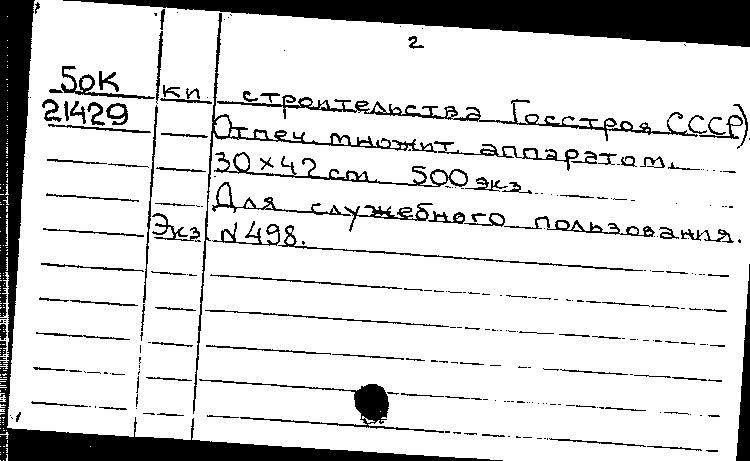 2
50К кп строительства Госстроя СССР)
21429 Отпеч. множит. аппаратом.
30×42 см 500 экз.
Для служебного пользования.
Экз N 498.